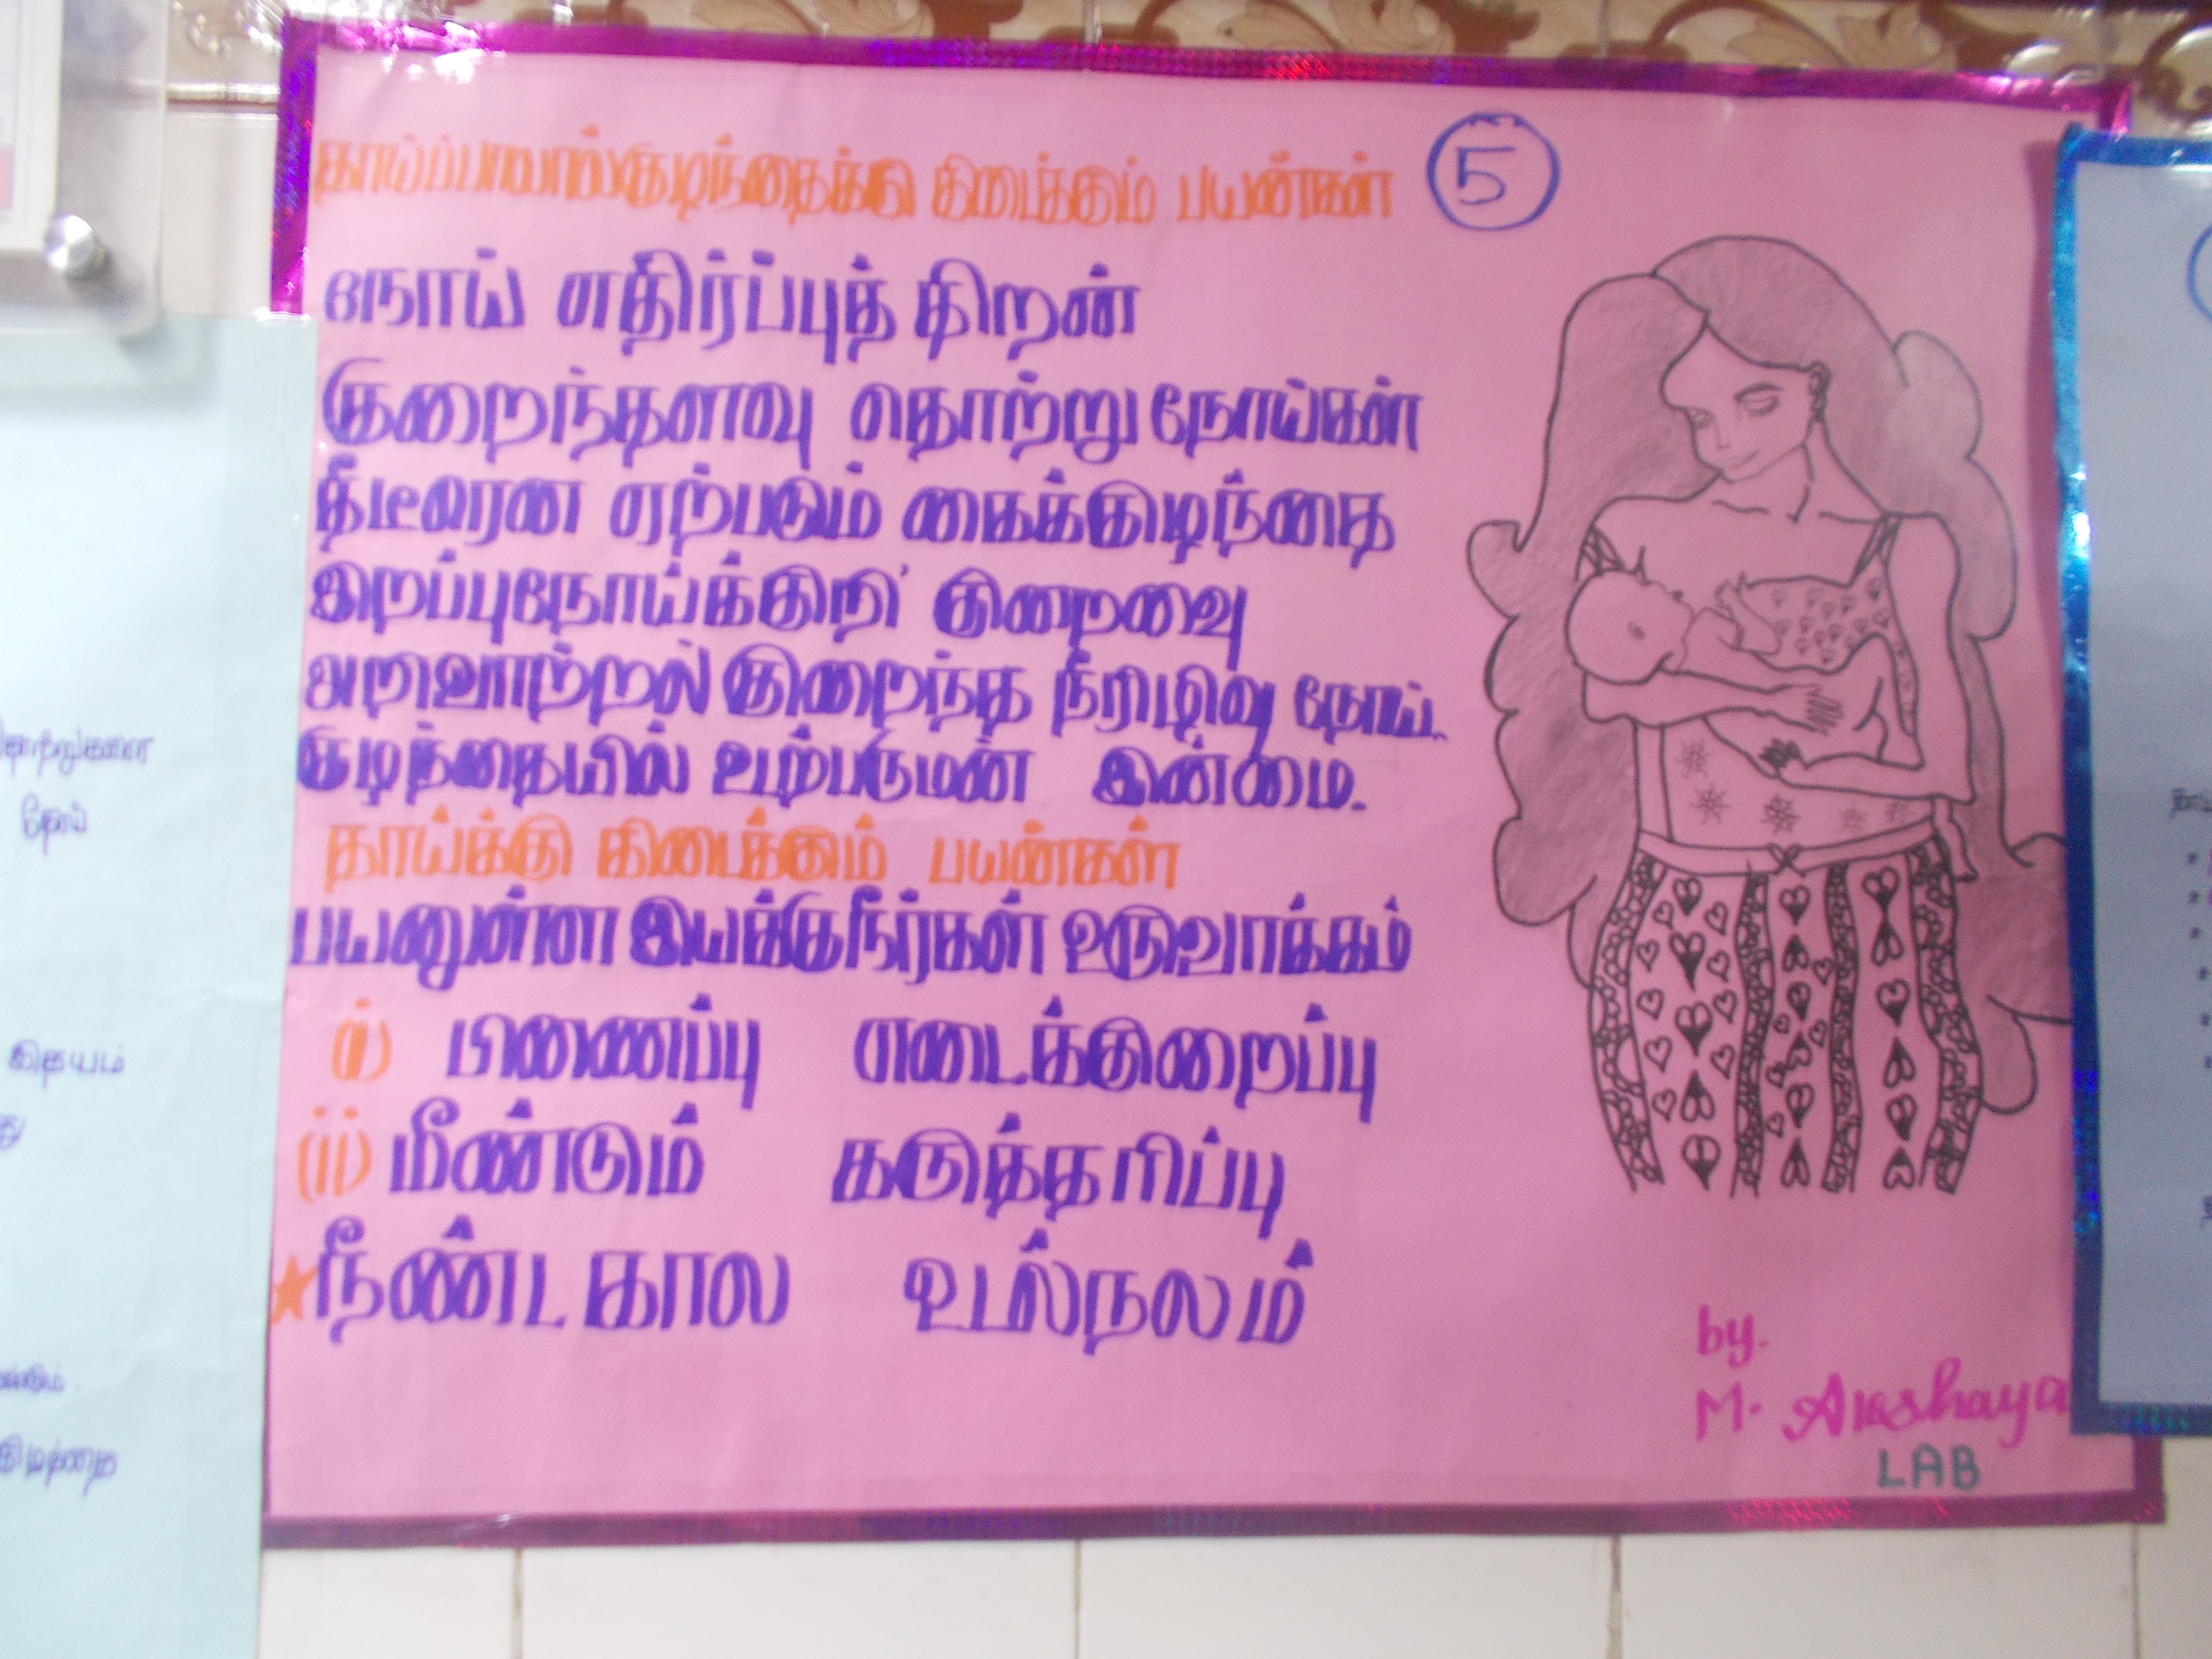 தாய்ப்பாலால் குழந்தைக்கு கிடைக்கும் பயன்கள்
5
நோய் எதிர்ப்புத் திறன்
குறைந்தளவு தொற்று நோய்கள்
திடீரென ஏற்படும் கைக்குழந்தை
இறப்புநோய்க்குறி குறைவு
அறிவாற்றல் குறைந்த நீரிழிவு நோய்.
குழந்தையில் உடற்பருமன் இன்மை.
தாய்க்கு கிடைக்கும் பயன்கள்
பயனுள்ள இயக்குநீர்கள் உருவாக்கம்
(i) பிணைப்பு எடைக்குறைப்பு
(ii) மீண்டும் கருத்தரிப்பு
நீண்ட கால உடல்நலம்
by.
M.
LAB
நோய்
இதயம்